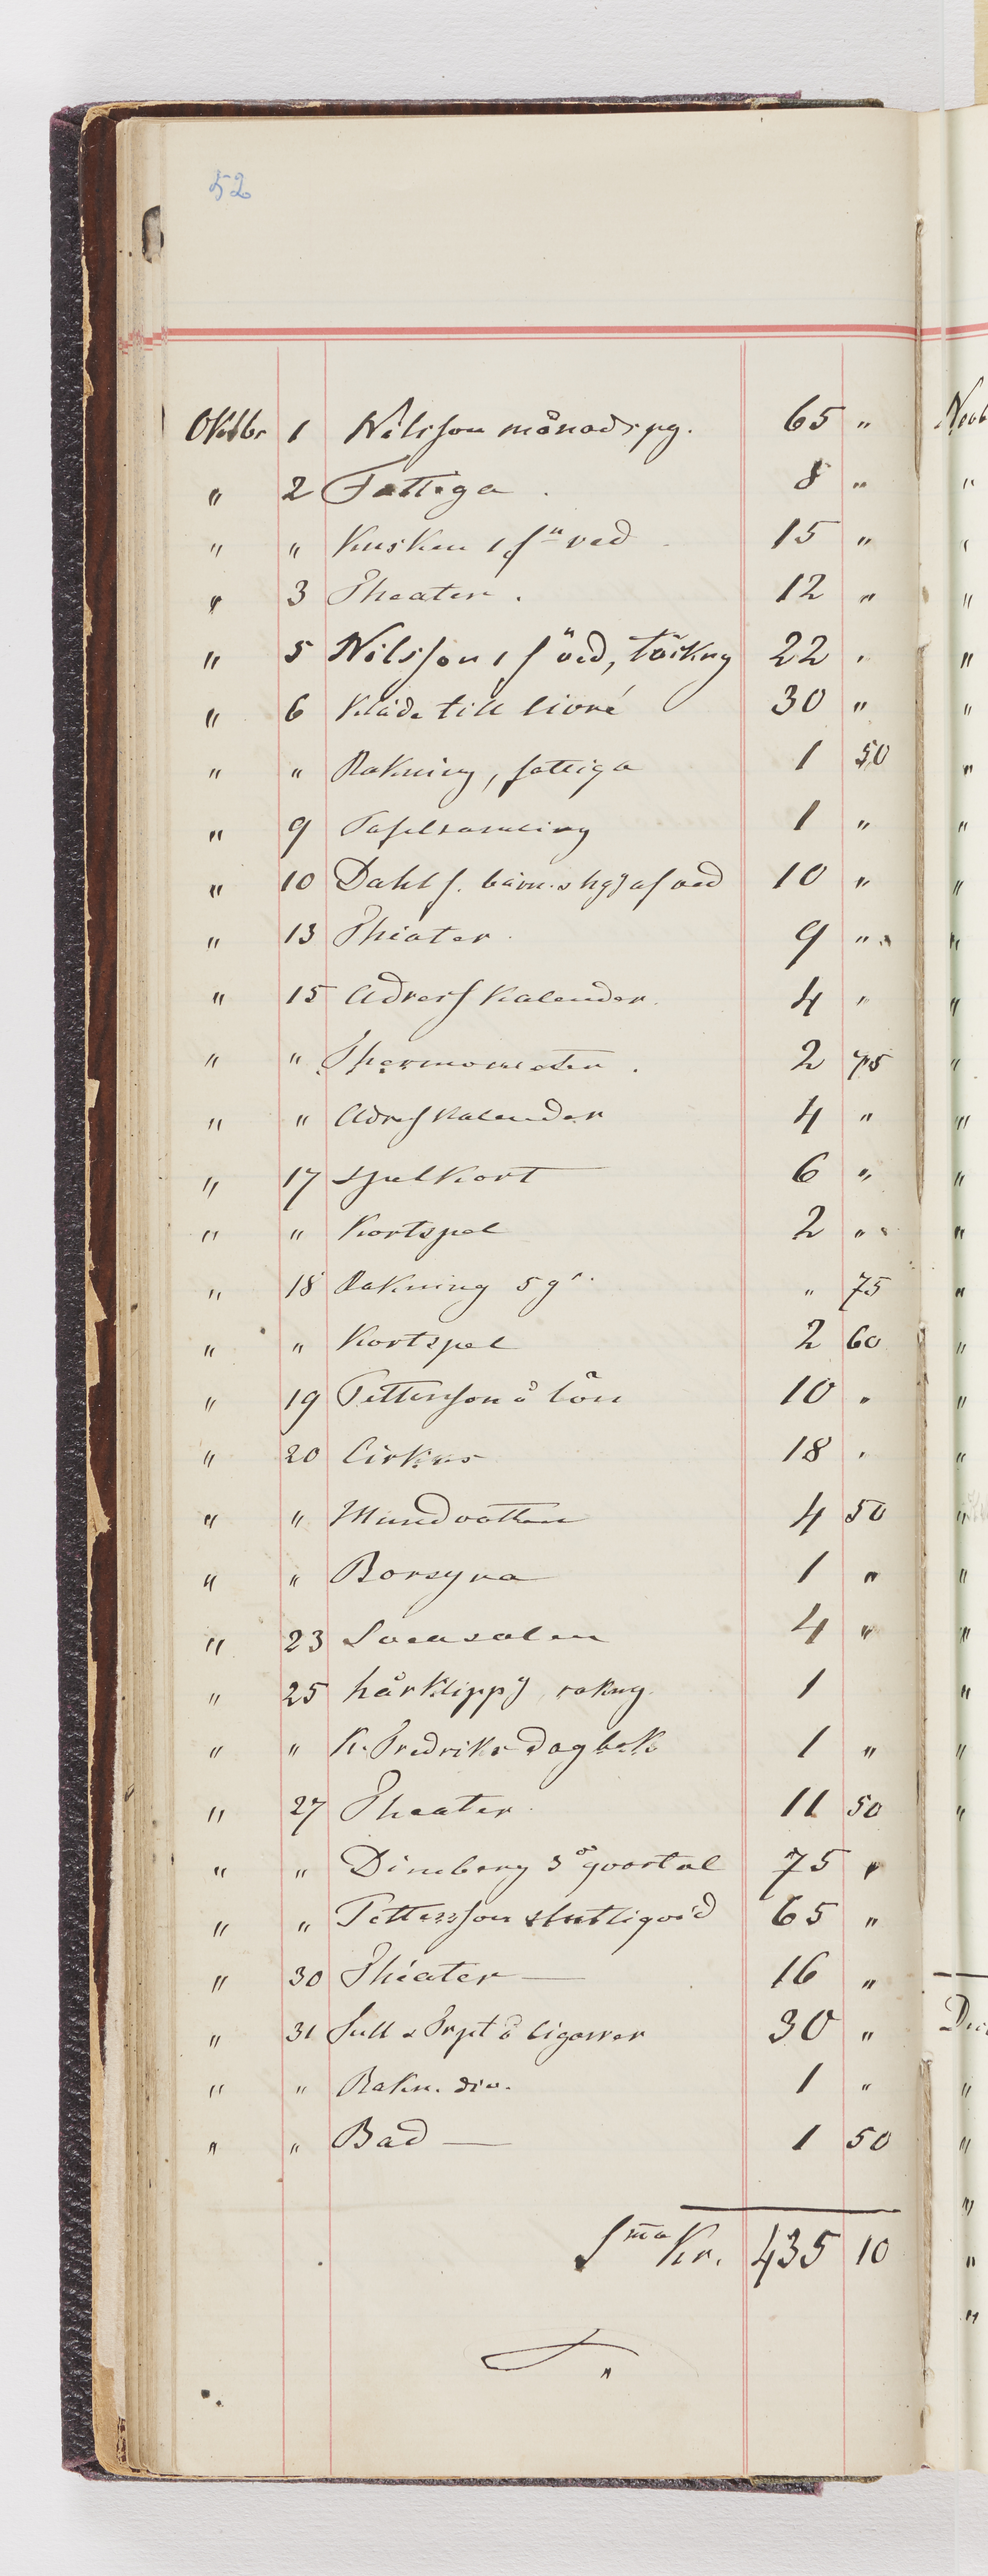 52
Oktobr 1 Nilsson månadspg. 65 "
" 2 Fattiga 8 "
" " Kusken 1 fn ved 15 "
" 3 Theater. 12 "
" 5 Nilsson 1 fn ved, 22 "
" 6 Kläde till livré 30 "
" " Rakning, fattiga 1 50
" 9 1 "
" 10 Dahl f. af ved 10 "
" 13 Theater 9 "
" 15 Adress Kalender. 4 "
" " Thermometer. 2 75
" " Adresskalender 4 "
" 17 Spelkort 6 "
" " Kortspel 2 "
" 18 Rakning 5 gr. " 75
" " Kortspel 2 60
" 19 Pettersson å lön 10 "
" 20 Cirkus 18 "
" " Mundvatten 4 50
" " Borsyra 1 "
" 23 Sveasalen 4 "
" 25 hårklippg rakng. 1
" " K. Fredriks Dagbok 1 "
" 27 Theater. 11 50
" " Dineberg 3e qvartal 75 "
" " Pettersson slutliqvid 65 "
" 30 Theater — 16 "
" 31 Tull & Frpt å Cigarrer 30 "
" " Rakn. div. 1 "
" " Bad — 1 50
Sma Kr. 435 10